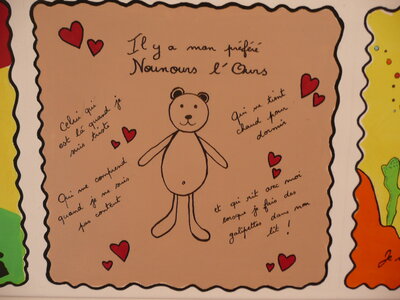 Il y a mon préféré
Nounours l'Ours
Celui qui
est là quand je
suis triste
Qui me tient
chaud pour
dormir
Qui me comprend
quand je ne suis
pas content
et qui rit avec moi
lorsque je fais des
galipettes dans mon
lit !
Je